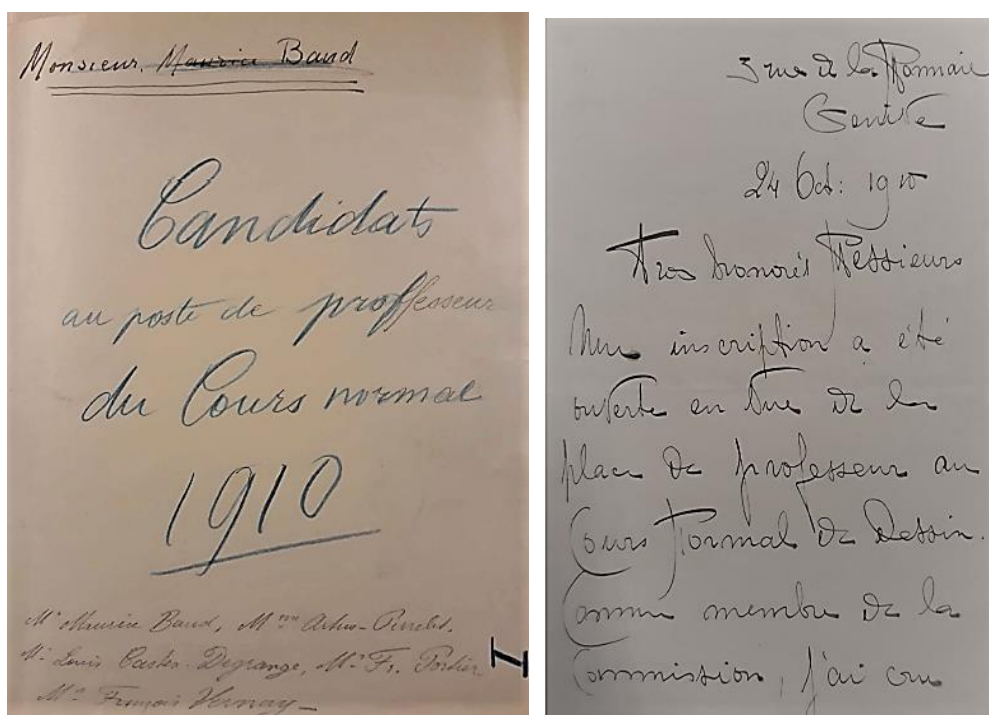 Monsieur. Maurice Baud
Candidats
au poste de proffesseur
du Cours normal
1910
Mr Maurice Baud, Mme Artus-Perrelet,
Mr Louis Castex-Degrange, Mr Fr. Portier,
Mr François Vernay
3 rue de la Monnaie
Genève
24 Oct: 1910
Très honorés Messieurs
Une inscription a été
ouverte en vue de la
place de professeur au
Cours Normal de Dessin.
Comme membre de la
Commission, j'ai cru